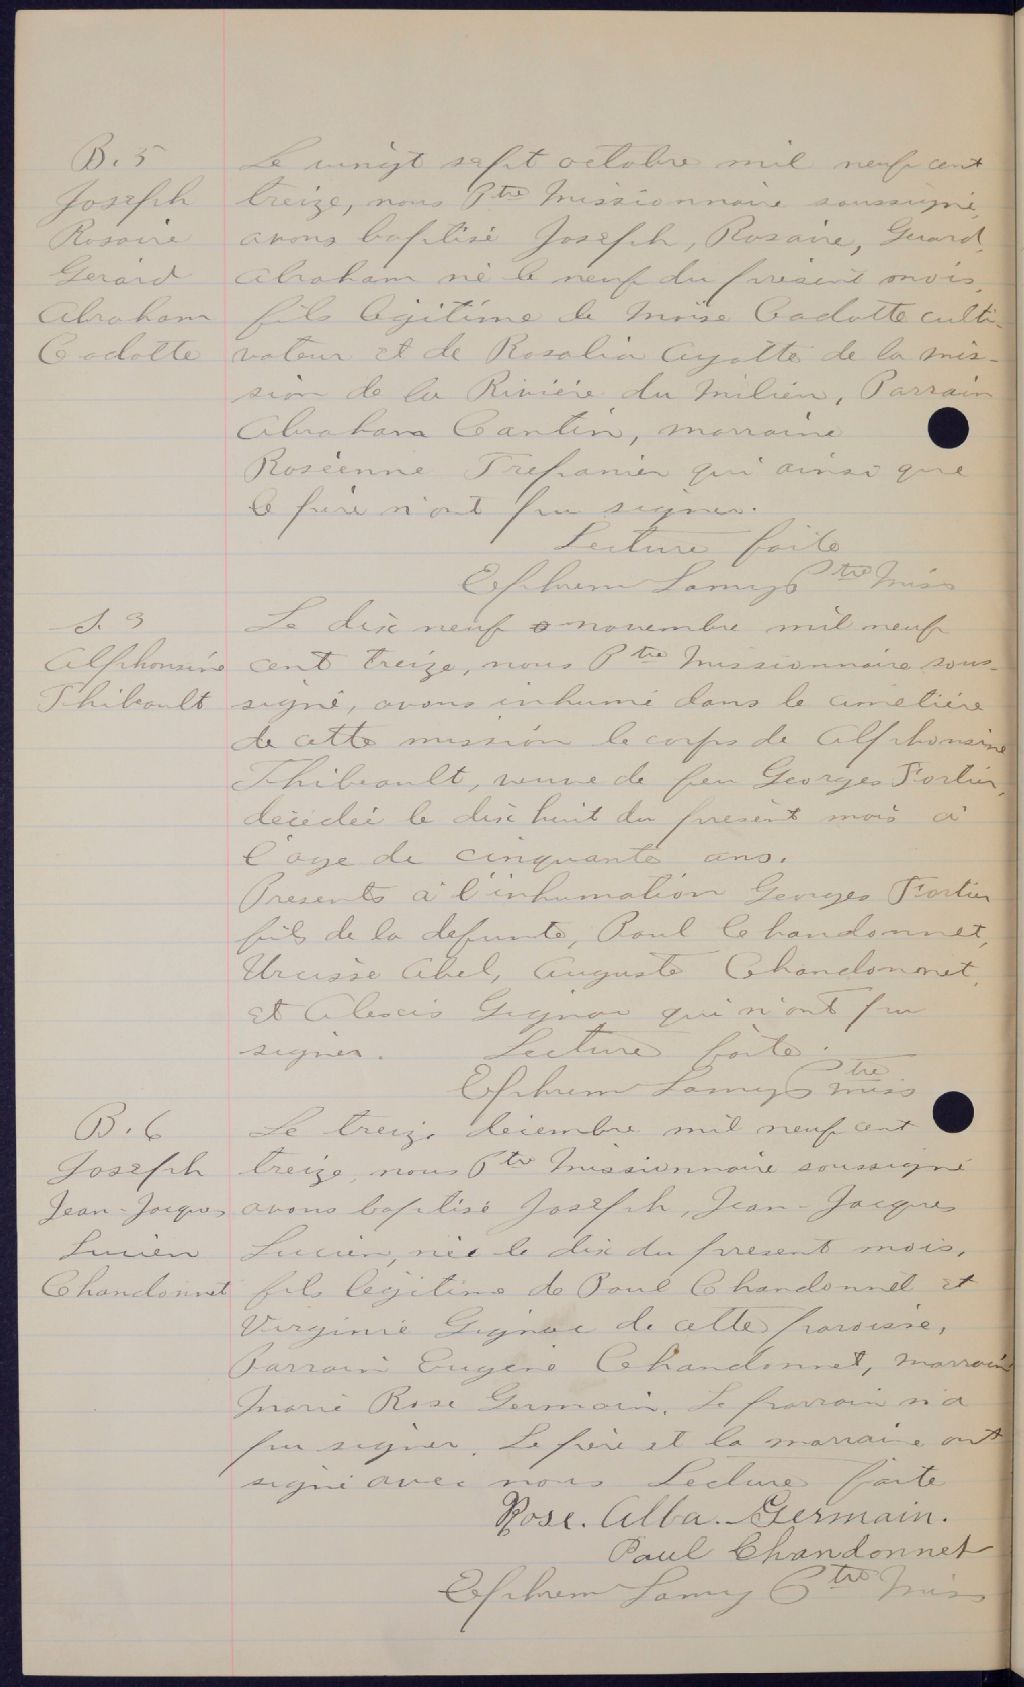 B. 5
Joseph
Rosaire
Gerard
Abraham
Cadotte
Le vingt sept octobre mil neuf cent
treize, nous Ptre Missionnaire soussigné,
avons baptisé Joseph, Rosaire, Gerard,
Abraham né le neuf du présent mois,
fils légitime de Moïse Cadotte culti-
vateur et de Rosalia Ayotte de la mis-
sion de la Rivière du Milieu, Parrain
Abraham Cantin, marraine
Roséenne Trepanier qui ainsi que
le père n'ont pu signer.
Lecture faite
Ephrem Lamy Ptre Miss
S. 3
Alphonsine
Thibeault
Le dix neuf novembre mil neuf
cent treize, nous Ptre Missionnaire sous-
signé, avons inhumé dans le cimetière
de cette mission le corps de Alphonsine
Thibeault, veuve de feu Georges Fortier,
décédée le dix huit du présent mois à
l'age de cinquante ans.
Presents à l'inhumation Georges Fortier
fils de la defunte, Paul Chandonnet,
Abel, Auguste Chandonnet,
et Alexis Gignac qui n'ont pu
signer. Lecture faite.
Ephrem Lamy Ptre miss
B. 6
Joseph
Jean-Jacques
Lucien
Chandonnet
Le treize décembre mil neuf cent
treize, nous Ptre Missionnaire soussigné
avons baptisé Joseph, Jean-Jacques
Lucien, née le dix du present mois,
fils légitime de Paul Chandonnet et
Virginie Gignac de cette paroisse,
Parrain Eugène Chandonnet, marraine
Marie Rose Germain. Le parrain n'a
pu signer. Le père et la marraine ont
signé avec nous Lecture faite
Rose. Alba. Germain.
Paul Chandonnet
Ephrem Lamy Ptre Miss